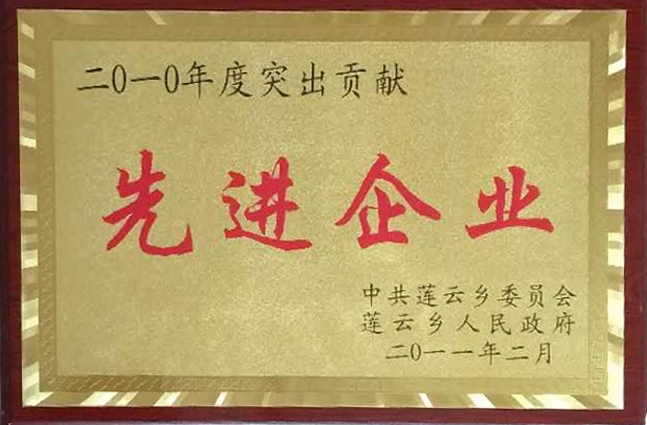 二0一0年度突出贡献
先进企业
中共莲云乡委员会
莲云乡人民政府
二0一一年二月